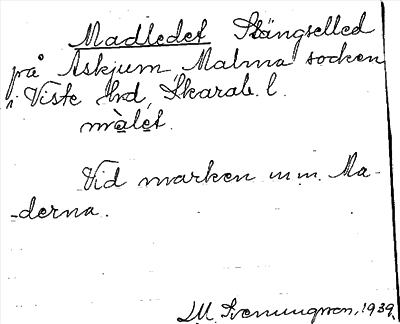 Madledet Stängselled
på Askjum Malma socken
i Viste hrd, Skarab. l.
màlet.
Vid marken m.m. Ma-
-derna.
M. Svenungson, 1939.